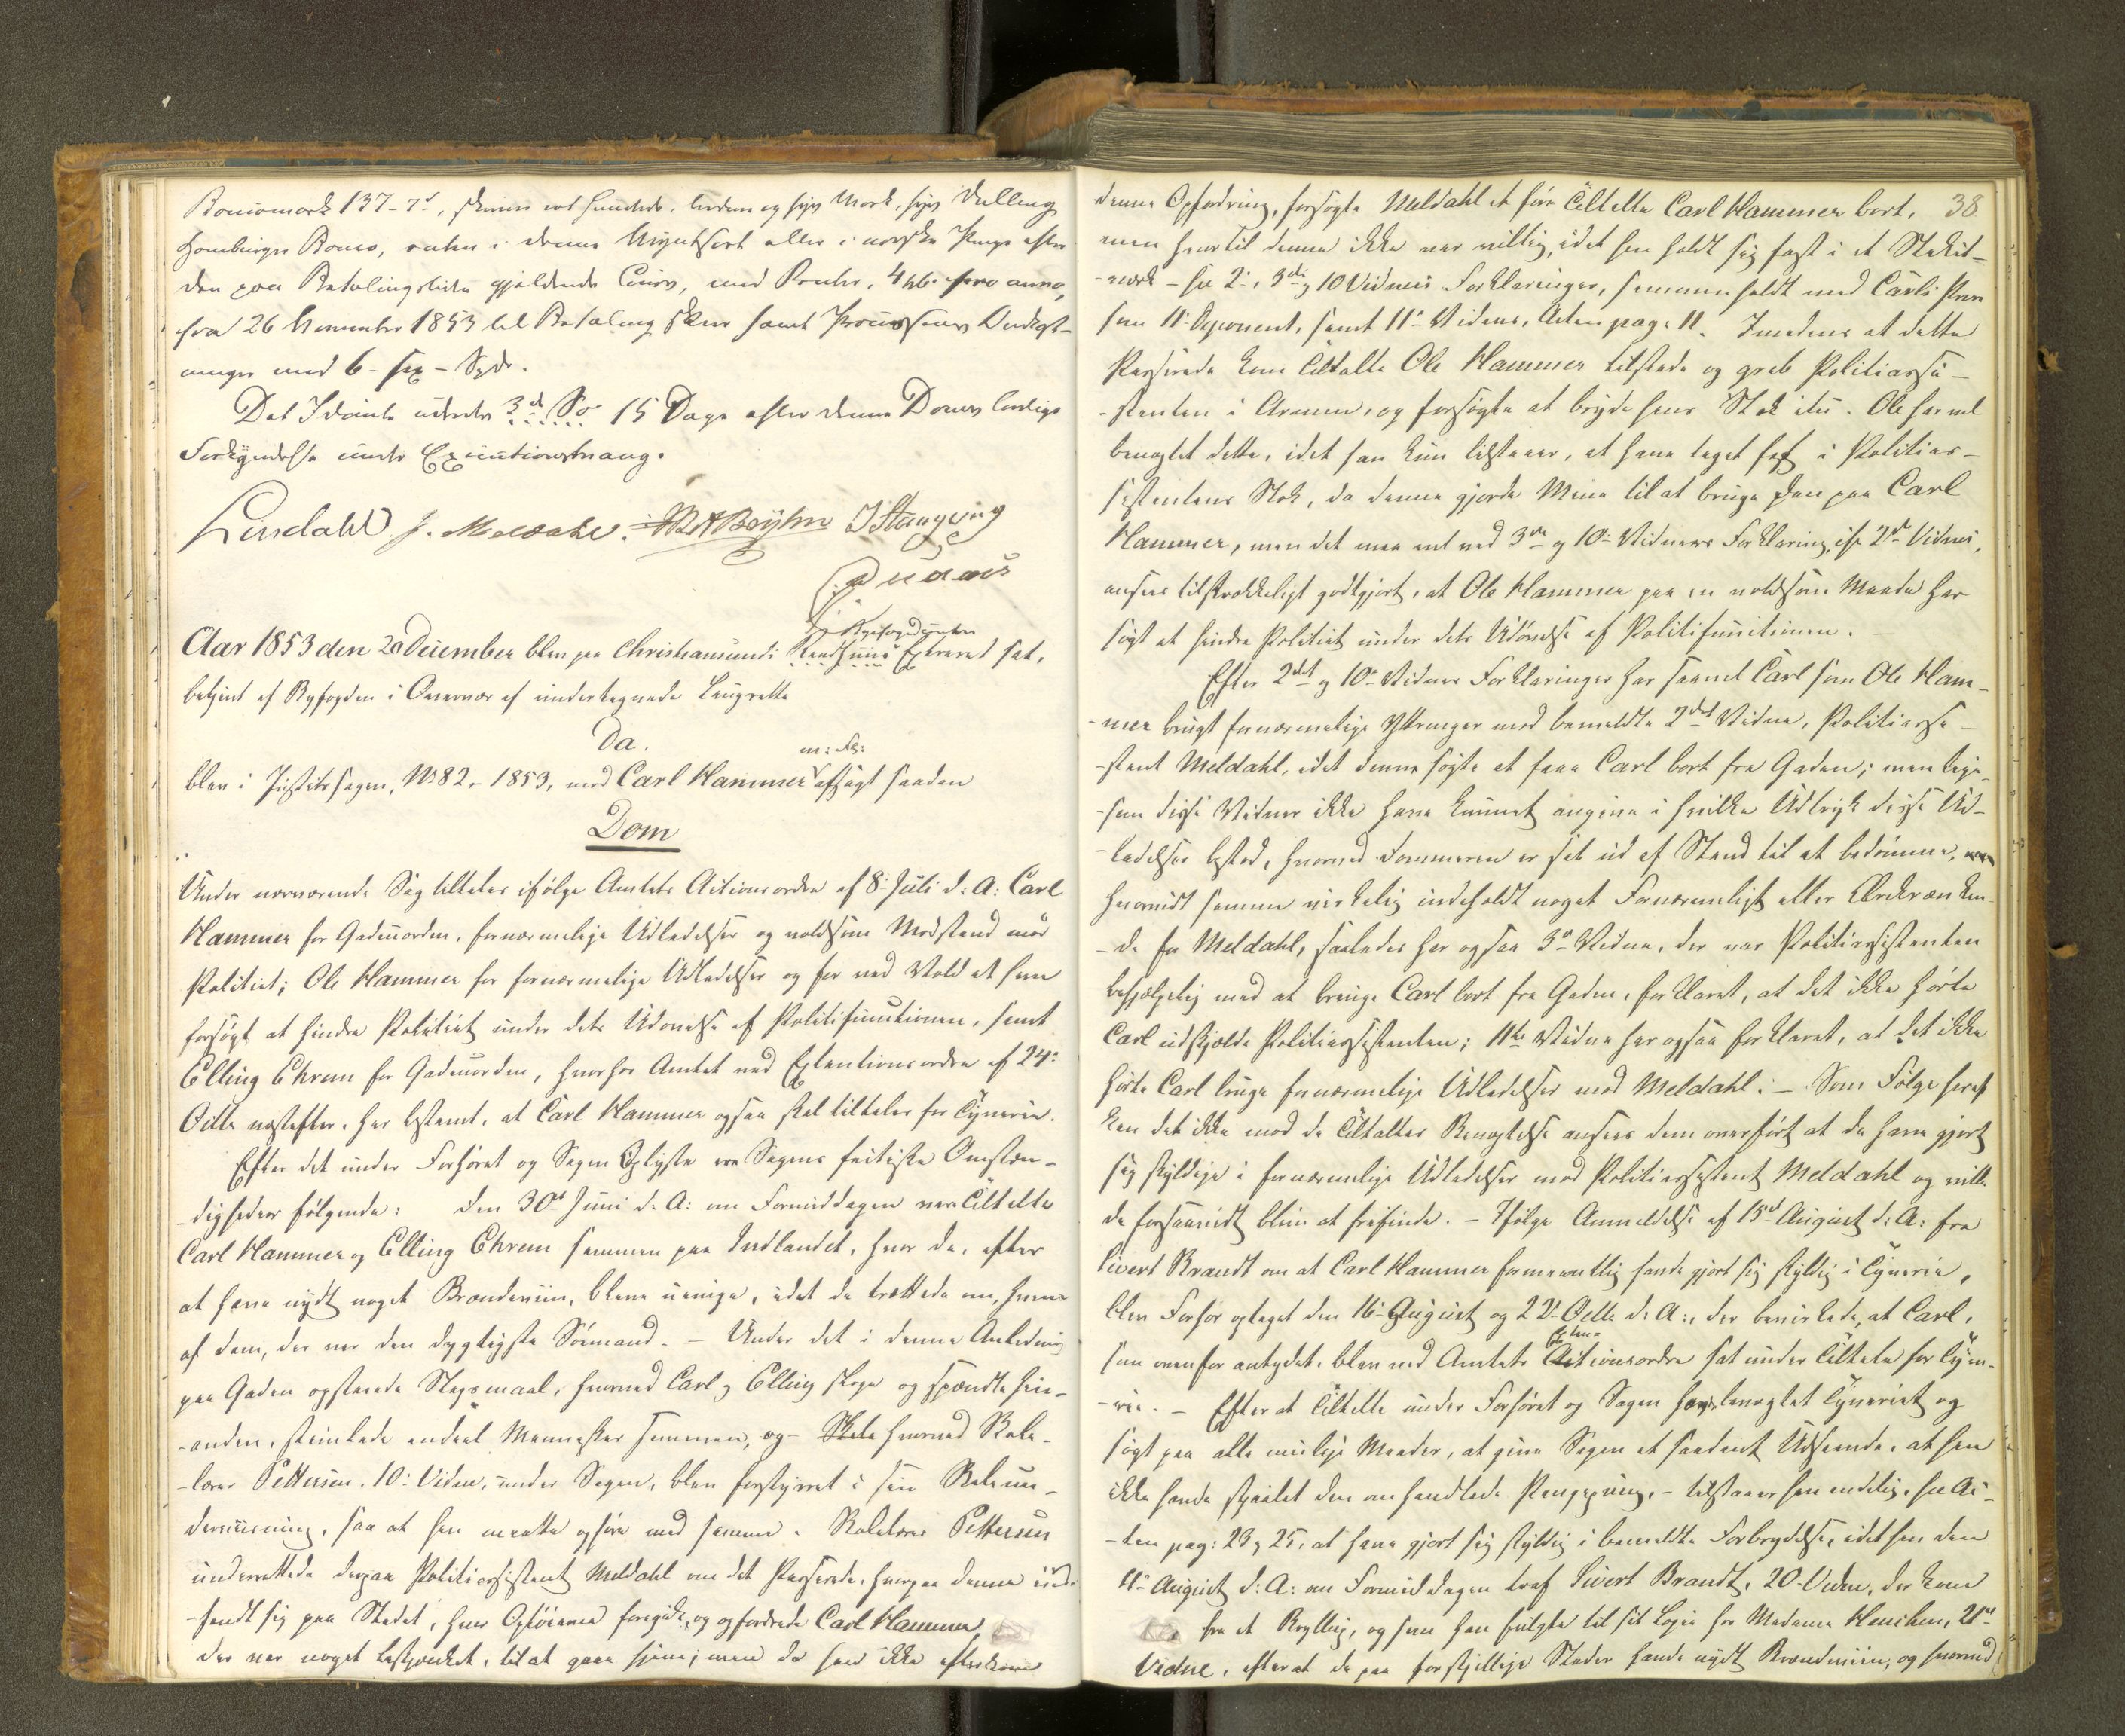 Bancomark 137-7s, skriver et hundrede, tredive og syv Mark, syv Skilling
Hamburger Banco, enten i denne Myntsort eller i norske Penge efter
den paa Betalingstiden gjeldende Cours, med Renter, 4 pCt. pro anno,
fra 26 November 1853 til Betaling skeer samt Processens Omkost-
ninger med 6 - sex - Spd.
Det Idømte udredes 3de So 15 Dage efter denne Doms lovlige
Forkyndelse under Executionstvang.
Lindahl J. Meldahl. J. Stangvig
Byefogedens
Aar 1853 den 20 December blev paa Christiansunds Raadhuus Extraret sat,
betjent af Byfogden i Overvær af undertegnede Laugrette
Da.
m: Fl:
blev i Justitssagen, No 82 - 1853, mod Carl Hammer afsagt saadan
Dom
Under nærværende Sag tiltales ifølge Amtets Actionsordre af 8 Juli d: A: Carl
Hammer for Gadeuorden, fornærmelige Udladelser og voldsom Modstand mod
Politiet; Ole Hammer for fornærmelige Udladelser og for ved Vold at have
forsøgt at hindre Politiet under dets Udøvelse af Politifunctionen, samt
Elling Ekrem for Gadeuorden, hvorhos Amtet ved Extentionsordre af 24:
Octbr næstefter, har bestemt, at Carl Hammer ogsaa skal tiltales for Tyverie.
Efter det under Forhøret og Sagen Oplyste ere Sagens factiske Omstæn-
-digheder følgende: Den 30te Juni d: A: om Formiddagen vare Tiltalte
Carl Hammer og Elling Ekrem sammen paa Indlandet, hvor de, efter
at have nydt noget Brændeviin, bleve uenige, idet de trættede om, hvem
af dem, der var den dygtigste Sømand. - Under det i denne Anledning
paa Gaden opstaaede Slagsmaal, hvorved Carl og Elling sloge og spændte hin-
-anden, stimlede endeel Mennesker sammen, og - Skole hvorved Skole-
-lærer Pettersen, 10: Vidne, under Sagen, blev forstyrret i sin Skoleun-
derviisning, saa at han maatte ophøre med samme. Skolelærer Pettersen
underrettede derpaa Politiassistent Meldahl om det Passerede, hvorpaa denne ind-
-fandt sig paa Stedet, hvor Optøierne foregik, og opfordrede Carl Hammer,
der var noget beskjænket, til at gaae hjem; men da han ikke efterkom
38
denne Opfordring, forsøgte Meldahl at føre Tiltalte Carl Hammer bort,
men hvortil denne ikke var villig, idet han holdt sig fast i et Stakit-
-værk - see 2:, 3die og 10 Vidners Forklaringer, sammenholdt med Carls
som 11: Deponent, samt 11: Vidnes, Acten pag: 11. Imedens at dette
Passerede kom Tiltalte Ole Hammer tilstede og greb Politiassi-
-stenten i Armen, og forsøgte at bryde hans Stok itu. Ole har vel
benægtet dette, idet han kun tilstaaer, at have taget fat i Politias-
sistentens Stok, da denne gjorde Mine til at bruge den paa Carl
Hammer, men det maa vel ved 3die og 10: Vidners Forklaring, cfr 2det Vidnes,
ansees tilstrækkeligt godtgjort, at Ole Hammer paa en voldsom Maade har
søgt at hindre Politiet under dets Udøvelse af Politifunctionen.
Efter 2det og 10: Vidnes Forklaringer har saavel Carl som Ole Ham-
-mer brugt fornærmelige Yttringer mod bemeldte 2det Vidne, Politiassi-
-stent Meldahl, idet denne søgte at faae Carl bort fra Gaden; men lige-
-som disse Vidner ikke have kunnet angive i hvilke Udtryk disse Ud-
-ladelser bestod, hvorved Dommeren er sat ud af Stand til at bedømme,
hvorvidt samme virkelig indeholdt noget Fornærmeligt eller Ærekrænken-
-de for Meldahl, saaledes har ogsaa 3die Vidne, der var Politiassistenten
behjælpelig med at bringe Carl bort fra Gaden, forklaret, at det ikke hørte
Carl udskjælde Politiassistenten; 11te Vidne har ogsaa forklaret, at det ikke
hørte Carl bruge fornærmelige Udladelser mod Meldahl. - Som Følge heraf
kan det ikke mod de Tiltaltes Benægtelse ansees dem overført at de have gjort
sig skyldige i fornærmelige Udladelser mod Politiassistent Meldahl og ville
de forsaavidt blive at frifinde. - Ifølge Anmeldelse af 15d August d: A: fra
Sivert Brandt om at Carl Hammer formeentlig havde gjort sig skyldig i Tyverie,
blev Forhør optaget den 16: August og 22: Octbr d: A:, der bevirkede, at Carl,
Exten-
som ovenfor antydet, blev ved Amtets Actionsordre sat under Tiltale for Tyve-
-rie. - Efter at Tiltalte under Forhøret og Sagen havde benægtet Tyveriet og
søgt paa alle mulige Maader, at give Sagen et saadant Udseende, at han
ikke havde stjaalet den omhandlede Pengepung, - tilstaaer han endelig, see Ac-
-ten pag: 23 og 25, at have gjort sig skyldig i bemeldte Forbrydelse, idet han den
11: August d: A: om Formiddagen traf Sivert Brandt, 20 Vidne, der kom
fra et Brygllup, og som han fulgte til sit Logie hos Madame Henchen, 21de
Vidne, efter at de paa forskjellige Steder havde nydt Brændeviin, og hvorved